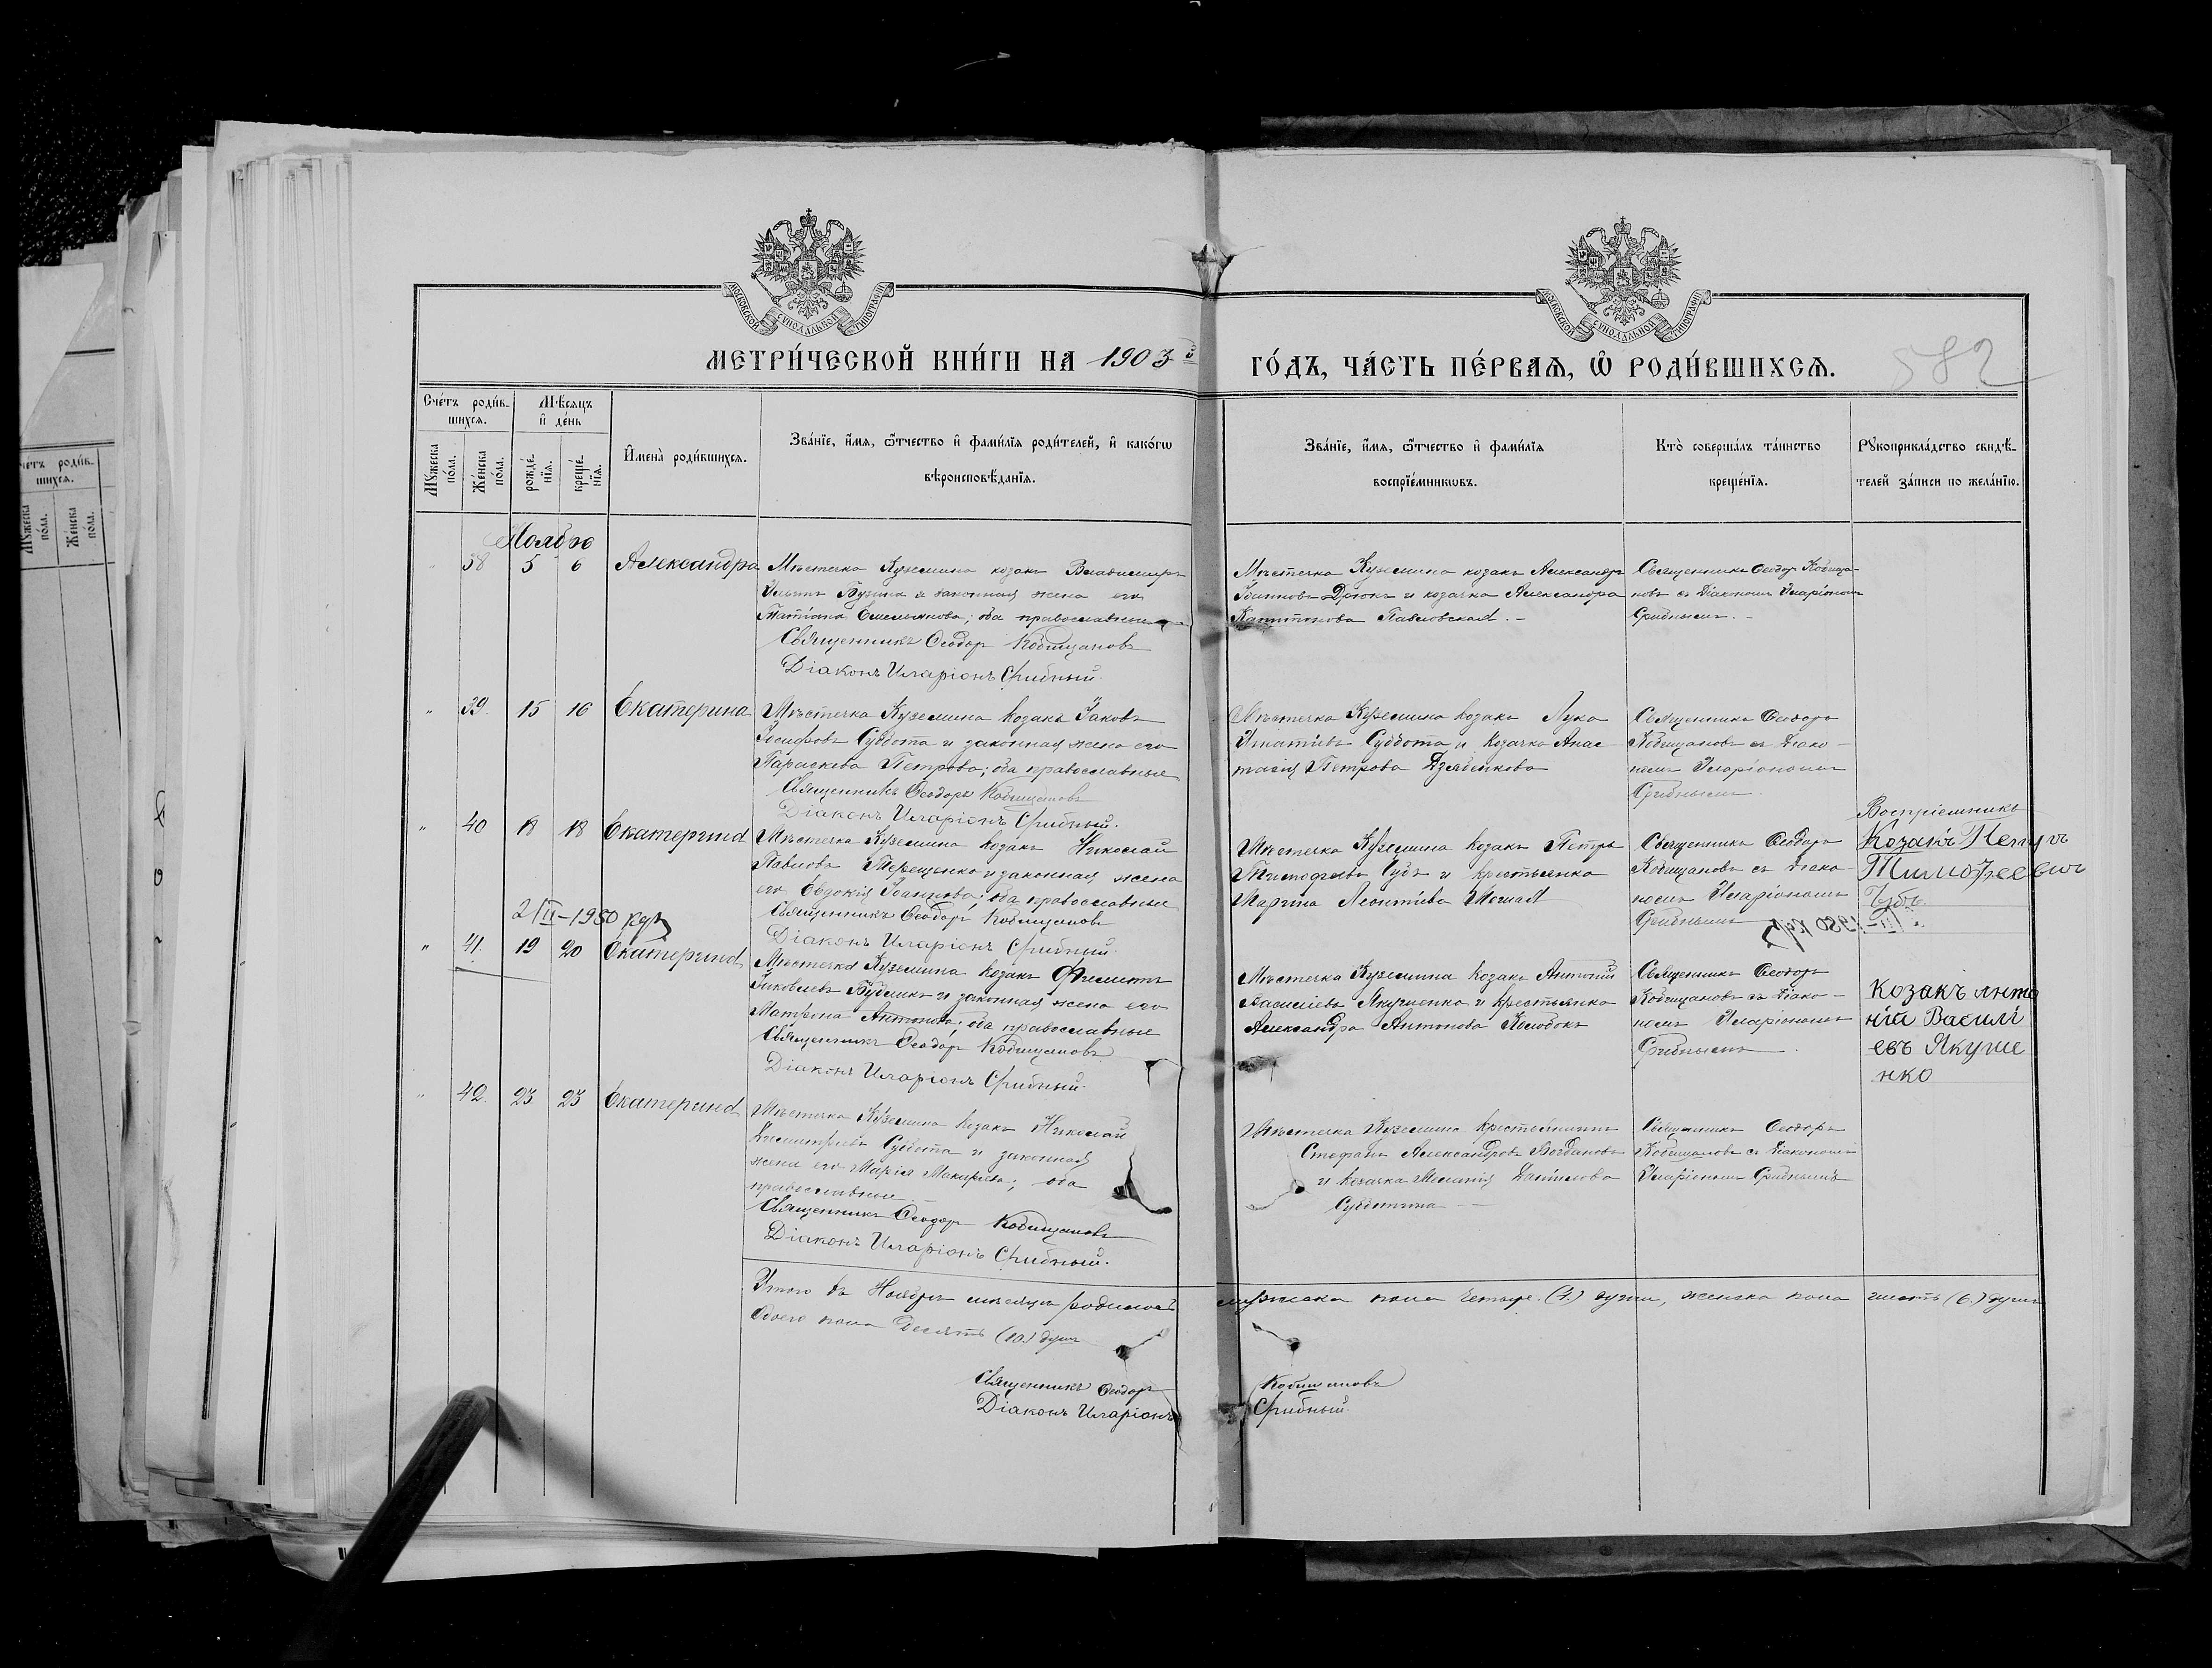 МОСКОВСКОЙ СѴНОДАЛЬНОЙ ТИПОГРАФІИ
МОСКОВСКОЙ СѴНОДАЛЬНОЙ ТИПОГРАФІИ
МЕТРИ́ЧЕСКОЙ КНИ́ГИ НА 1903 й ГО́ДЪ, ЧА́СТЬ ПЕ́РВАѦ, Ѽ РОДИ́ВШИХСѦ.
582
Сче́тъ роди́в-
шихсѧ.
Мѣ́сяцъ
и҆ де́нь
Мꙋжеска
по́ла.
Же́нска
по́ла.
рожде́-
нїѧ.
креще́-
нїѧ.
И҆мена̀ роди́вшихсѧ.
Зва́нїе, и҆́мѧ, ѻ҆́тчество и҆ фами́лїѧ роди́телей, и҆ како́гѡ
вѣроисповѣ́данїѧ.
Зва́нїе, и҆́мѧ, ѻ҆́тчество и҆ фами́лїѧ
воспрїе́мникѡвъ.
Кто̀ соверша́лъ та́инство
креще́нїѧ.
Рꙋкоприкла́дство свидѣ́-
телей за́писи по жела́нїю.
Ноябрь
" 38 5 6 Александра
Мѣстечка Куземина козакъ Владимиръ
Ильинъ и законная жена его
Татіана Емельянова; оба православные
Священникъ Ѳеодоръ Кобищановъ
Діаконъ Иларіонъ Срибный.
Мѣстечка Куземина козакъ Александръ
Іоанновъ Дрюкъ и козачка Александра
Капитонова Павловская. -
Священникъ Ѳеодоръ Кобища-
новъ съ Діакономъ Иларіономъ
Срибнымъ. -
" 39. 15 16 Екатерина
Мѣстечка Куземина козакъ Іаковъ
Іосифовъ Суббота и законная жена его
Параскева Петрова; оба православные
Священникъ Ѳеодоръ Кобищановъ
Діаконъ Иларіонъ Срибный.
Мѣстечка Куземина козакъ Лука
Игнатіевъ Суббота и козачка Анас-
тасія Петрова Дзябенкова
Священникъ Ѳеодоръ
Кобищановъ съ Діако-
номъ Иларіономъ
Срибнымъ.
" 40 18 18 Екатерина
Мѣстечка Куземина козакъ Николай
Павловъ Терещенко и законная жена
его Евдокія Іоаннова; оба православные
Священникъ Ѳеодоръ Кобищановъ
Діаконъ Иларіонъ Срибный.
Мѣстечка Куземина козакъ Петръ
Тимоѳеевъ и крестьянка
Марина Леонтіева
Священникъ Ѳеодоръ
Кобищановъ съ Діако-
номъ Иларіономъ
Срибнымъ
Воспріемникъ
Козакъ Петръ
Тимоѳеевъ
2/III-1980
" 41. 19 20 Екатерина
Мѣстечка Куземина козакъ Филиппъ
Іаковлевъ и законная жена его
Матрона Антонова; оба православные
Священникъ Ѳеодоръ Кобищановъ
Діаконъ Иларіонъ Срибный.
Мѣстечка Куземина козакъ Антоній
Василіевъ Якушенко и крестьянка
Александра Антонова Колодокъ
Священникъ Ѳеодоръ
Кобищановъ съ Діако-
номъ Иларіономъ
Срибнымъ.
Козакъ Анто
ній Василі
евъ Якуше
нко
" 42. 23 23 Екатерина
Мѣстечка Куземина козакъ Николай
Димитріевъ Суббота и законная
жена его Марія Макаріева; оба
православные. -
Священникъ Ѳеодоръ Кобищановъ
Діаконъ Иларіонъ Срибный.
Мѣстечка Куземина крестьянинъ
Стефанъ Александровъ Богдановъ
и козачка Меланія Даніилова
Субботина -
Священникъ Ѳеодоръ
Кобищановъ съ Діакономъ
Иларіономъ Срибнымъ
Итого въ Ноябрѣ мѣсяцѣ родилось мужеска пола четыре (4.) души, женска пола шесть (6.) душъ
Обоего пола десять (10.) душъ
Священникъ Ѳеодоръ Кобищановъ
Діаконъ Иларіонъ Срибный.